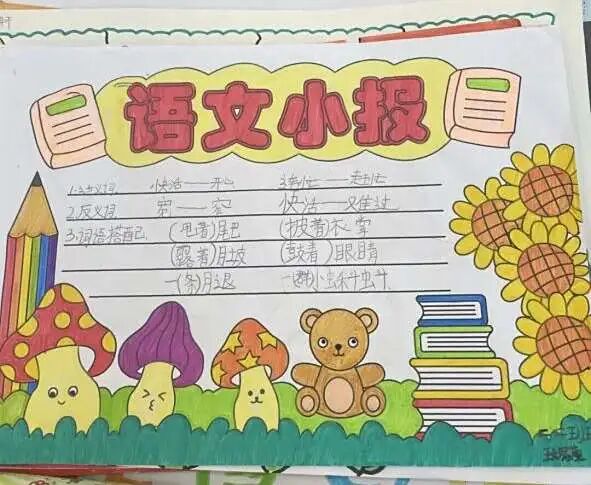 语文小报
1.近义词 快活——开心 ——赶忙
2.反义词 宽——窄 快活——难过
3.词语搭配 (甩着)尾巴 (披着)衣裳
(露着)肚皮 (鼓着)眼睛
一(条)腿 一(群)小蝌蚪